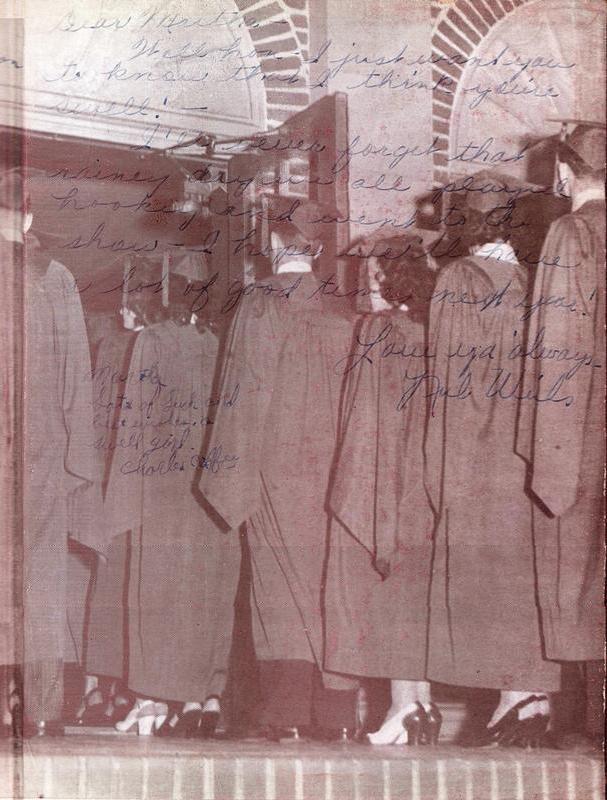 Dear Martha -
Well hon - I just want you
to know that I think you're
swell! -
I'll never forget that
rainey day we all played
hookey and went to the
show - I hope we'll have
a lot of good times next year!
Love ya always -
Martha
Lots of luck and
best wishes to a
swell girl.
Charles Coffee